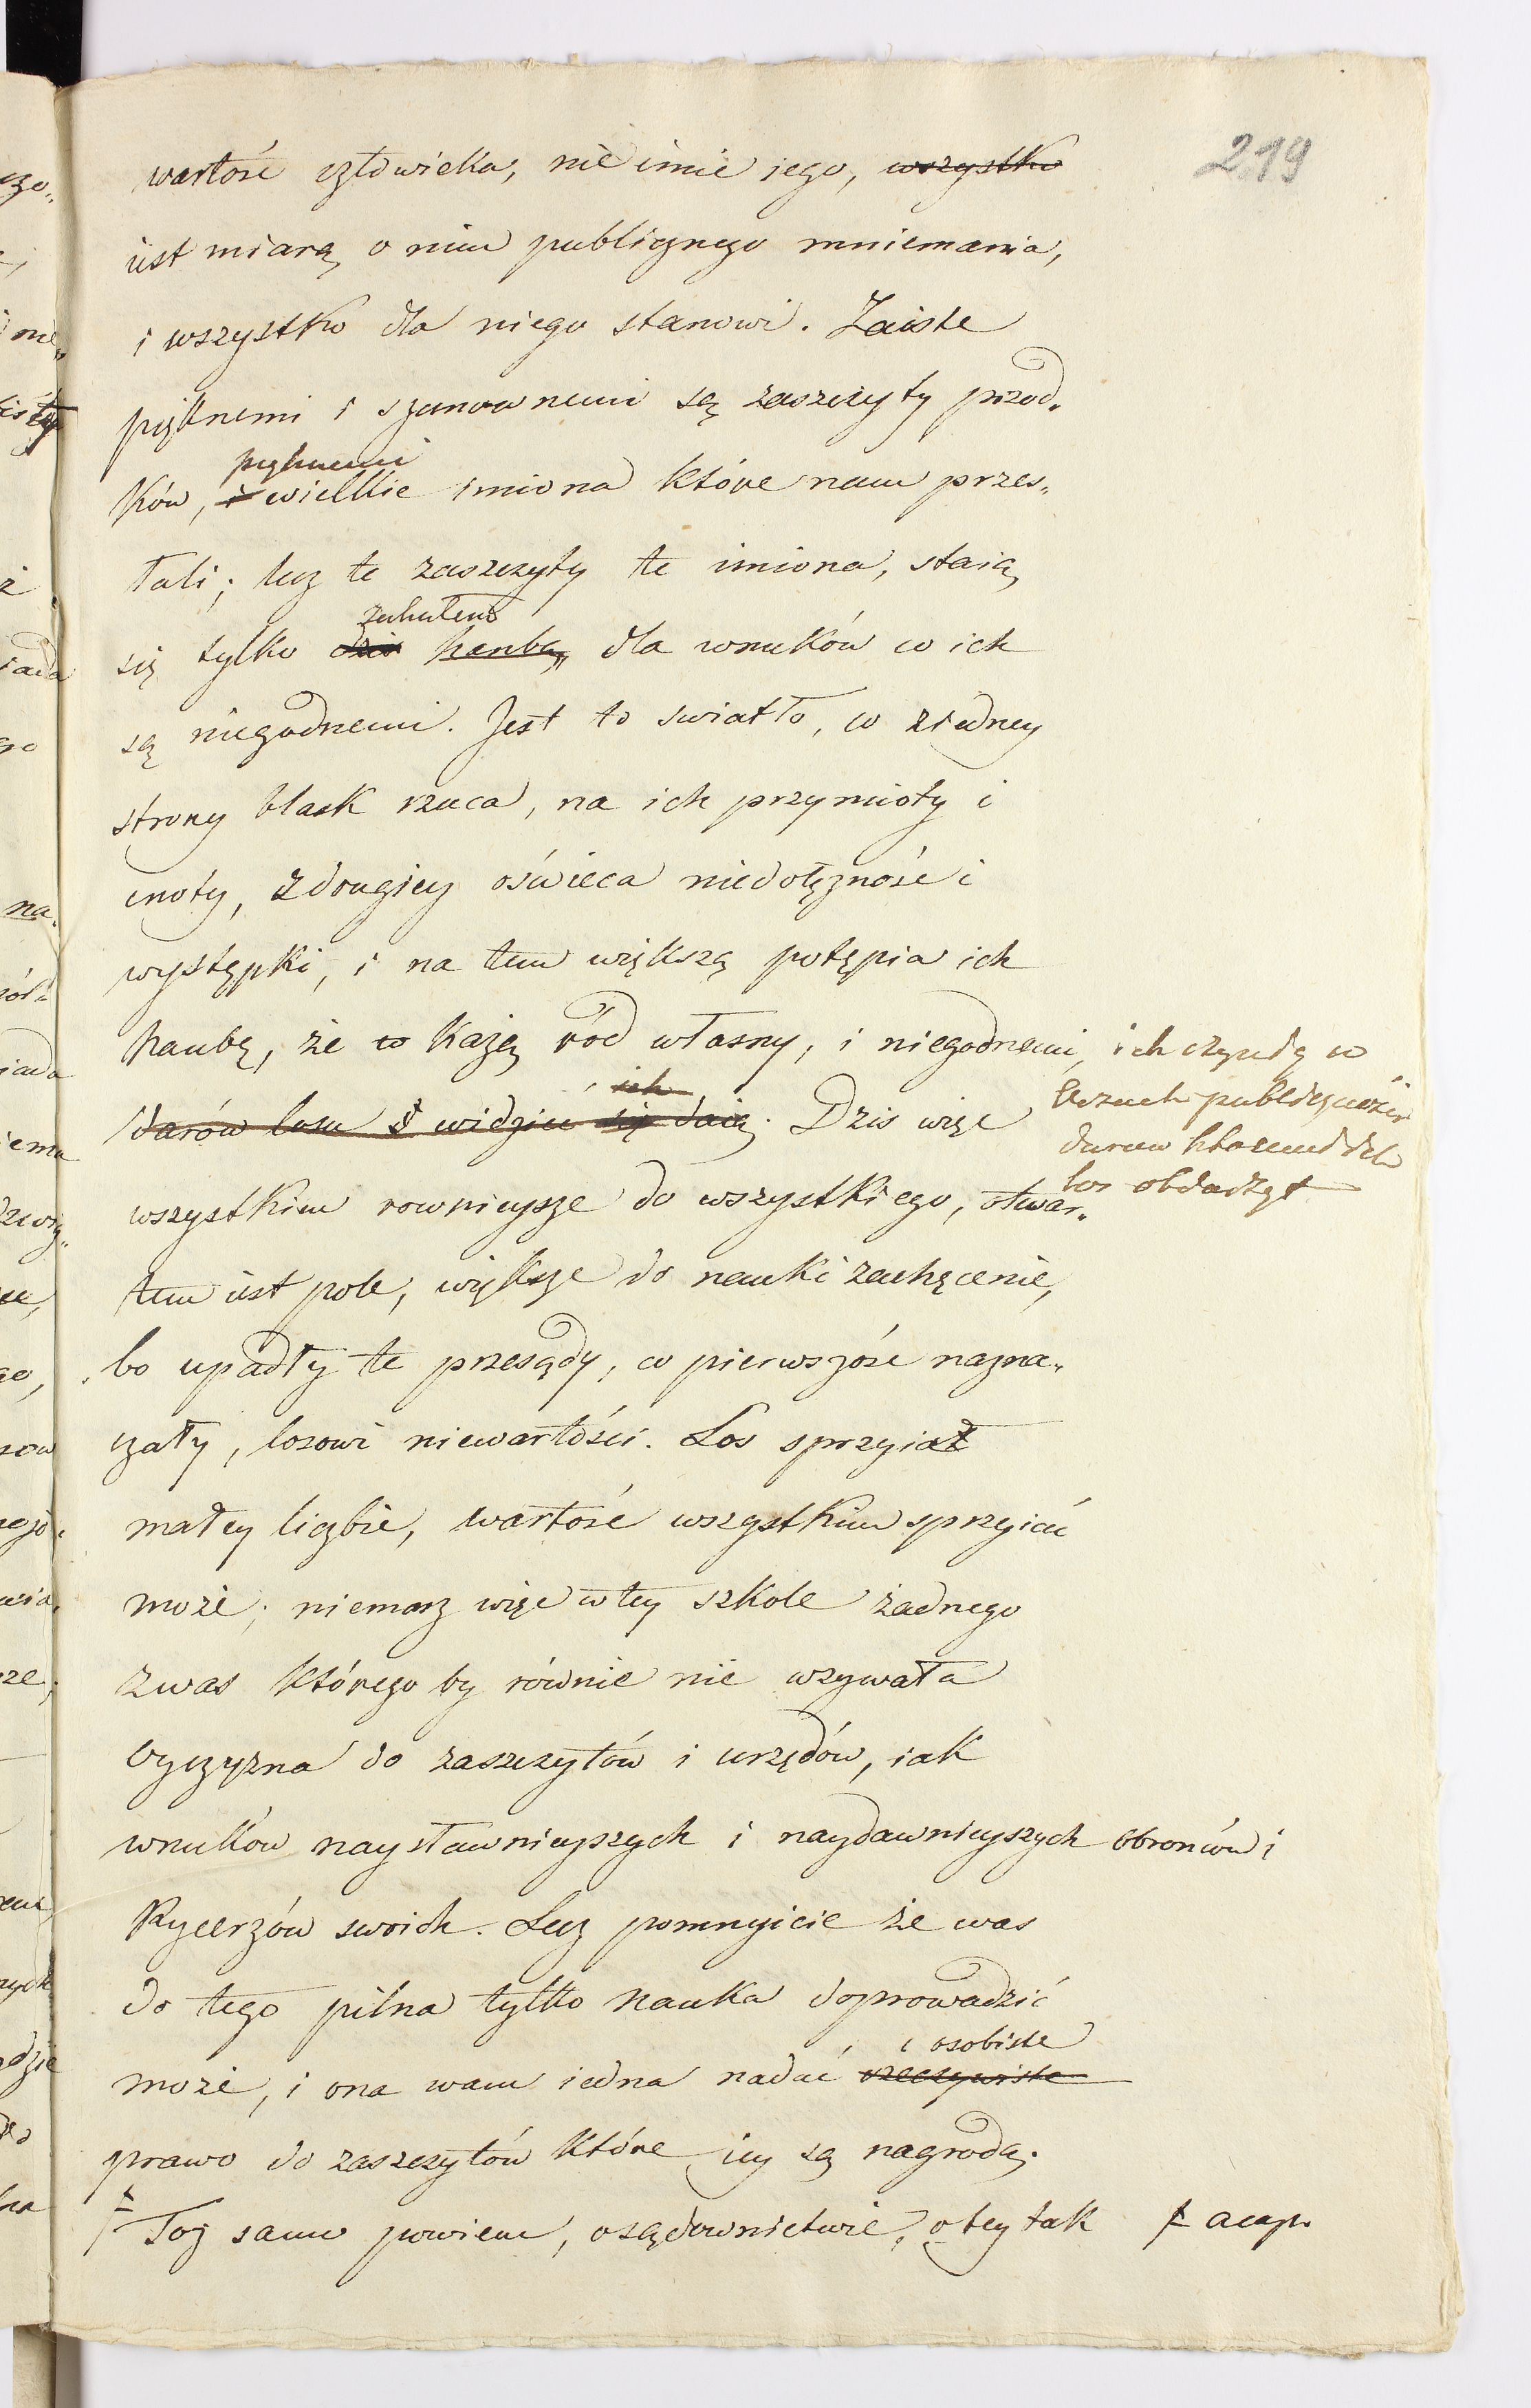 219
wartość człowieka, nie imie jego, wszystko
iest miarą o nim publicznego mniemania,
i wszystko dla niego stanowi. Zaiste
pięknemi i szanownemi są zaszczyty przod„
pięknemi
ków, i wielkie imiona które nam przes„
łali; lecz te zaszczyty te imiona, staią
się tylko hanbą, dla wnuków co ich
są niegodnemi. Jest to swiatło, co ziedney
strony blask rzuca, na ich przymioty i
cnoty, zdrugiey oświeca niedołężność i
występki, i na tem większą potępia ich
hanbę, że to każą ród własny, i niegodnemi, ich czynią w
oczach publiczności
darów któremi ich
los obdarzył
ich
darów losu widzieć się daią. Dzis więc
wszystkim rownieysze do wszystkiego, otwar„
tem iest pole, większe do nauki zachęcenie,
bo upadły te przesądy, co pierwszość nazna„
czały, losowi niewartości. Los sprzyiał
małey liczbie, wartość wszystkim sprzyiać
może; niemasz więc wtey szkole żadnego
zwas którego by równie nie wzywała
Oyczyzna do zaszczytów i urzędów, iak
wnuków naysławnieyszych i naydawnieyszych obrońców i
Rycerzów swoich. Lecz pomnyicie że was
do tego pilna tylko nauka doprowadzić
i osobiste
może, i ona wam iedna nadać rzeczywiste
prawo do zaszczytów które iey są nagrodą.
Toż samo powiem, osądownictwie, o tey tak